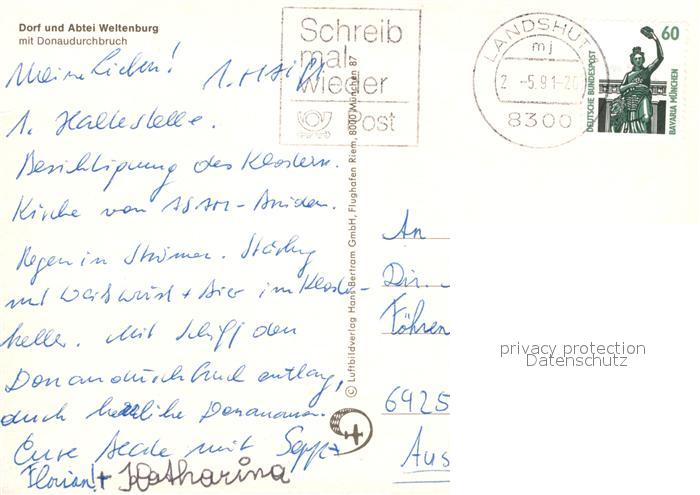 Dorf und Abtei Weltenburg
mit Donaudurchbruch
Meine Lieben! 1. Mai 91
1. Haltestelle.
Besichtigung des Klosters.
Kirche von Asam-Brüder.
Regen in Strömen. Stärkung
mit Weißwurst + Bier im Kloster-
keller. Mit Schiff den
Donaudurchbruch entlang,
durch herrliche Donauauen.
Eure mit Sepp +
Florian! + Katharina
© Luftbildverlag Hans Bertram GmbH, Flughafen Riem, 8000 München 87
Schreib
mal
wieder
Post
LANDSHUT
mj
2.-5.91-20
8300
60
DEUTSCHE BUNDESPOST
BAVARIA MÜNCHEN
An
Föhren
6925
Aus
privacy protection
Datenschutz